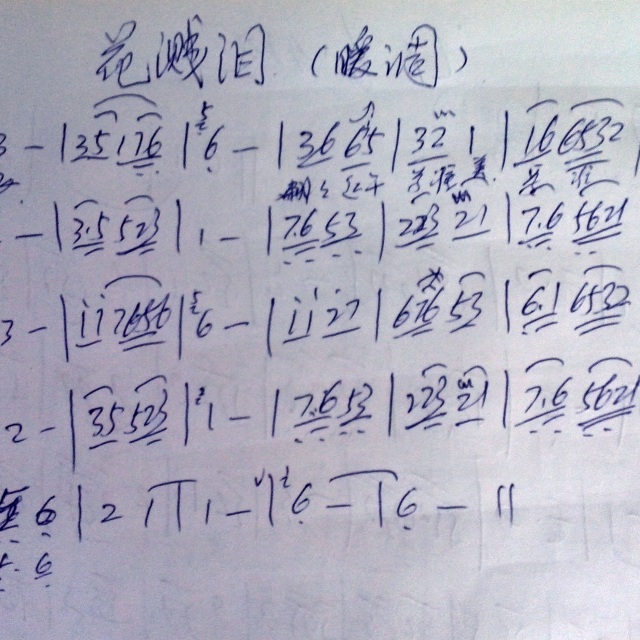 花溅泪（暖调）
3 - | 35 176 | 6 - | 36 65 | 32 1 | 16 6532 |
- | 3.5 523 | 1 - | 7.6 53 | 223 21 | 7.6 5621
3 - | 11 7656 | 6 - | 11 27 | 676 53 | 6.1 6532
2 - | 35 523 | 1 - | 7.6 53 | 223 21 | 7.6 5621
6 | 2 1 | 1 - | 6 - | 6 - ||
6